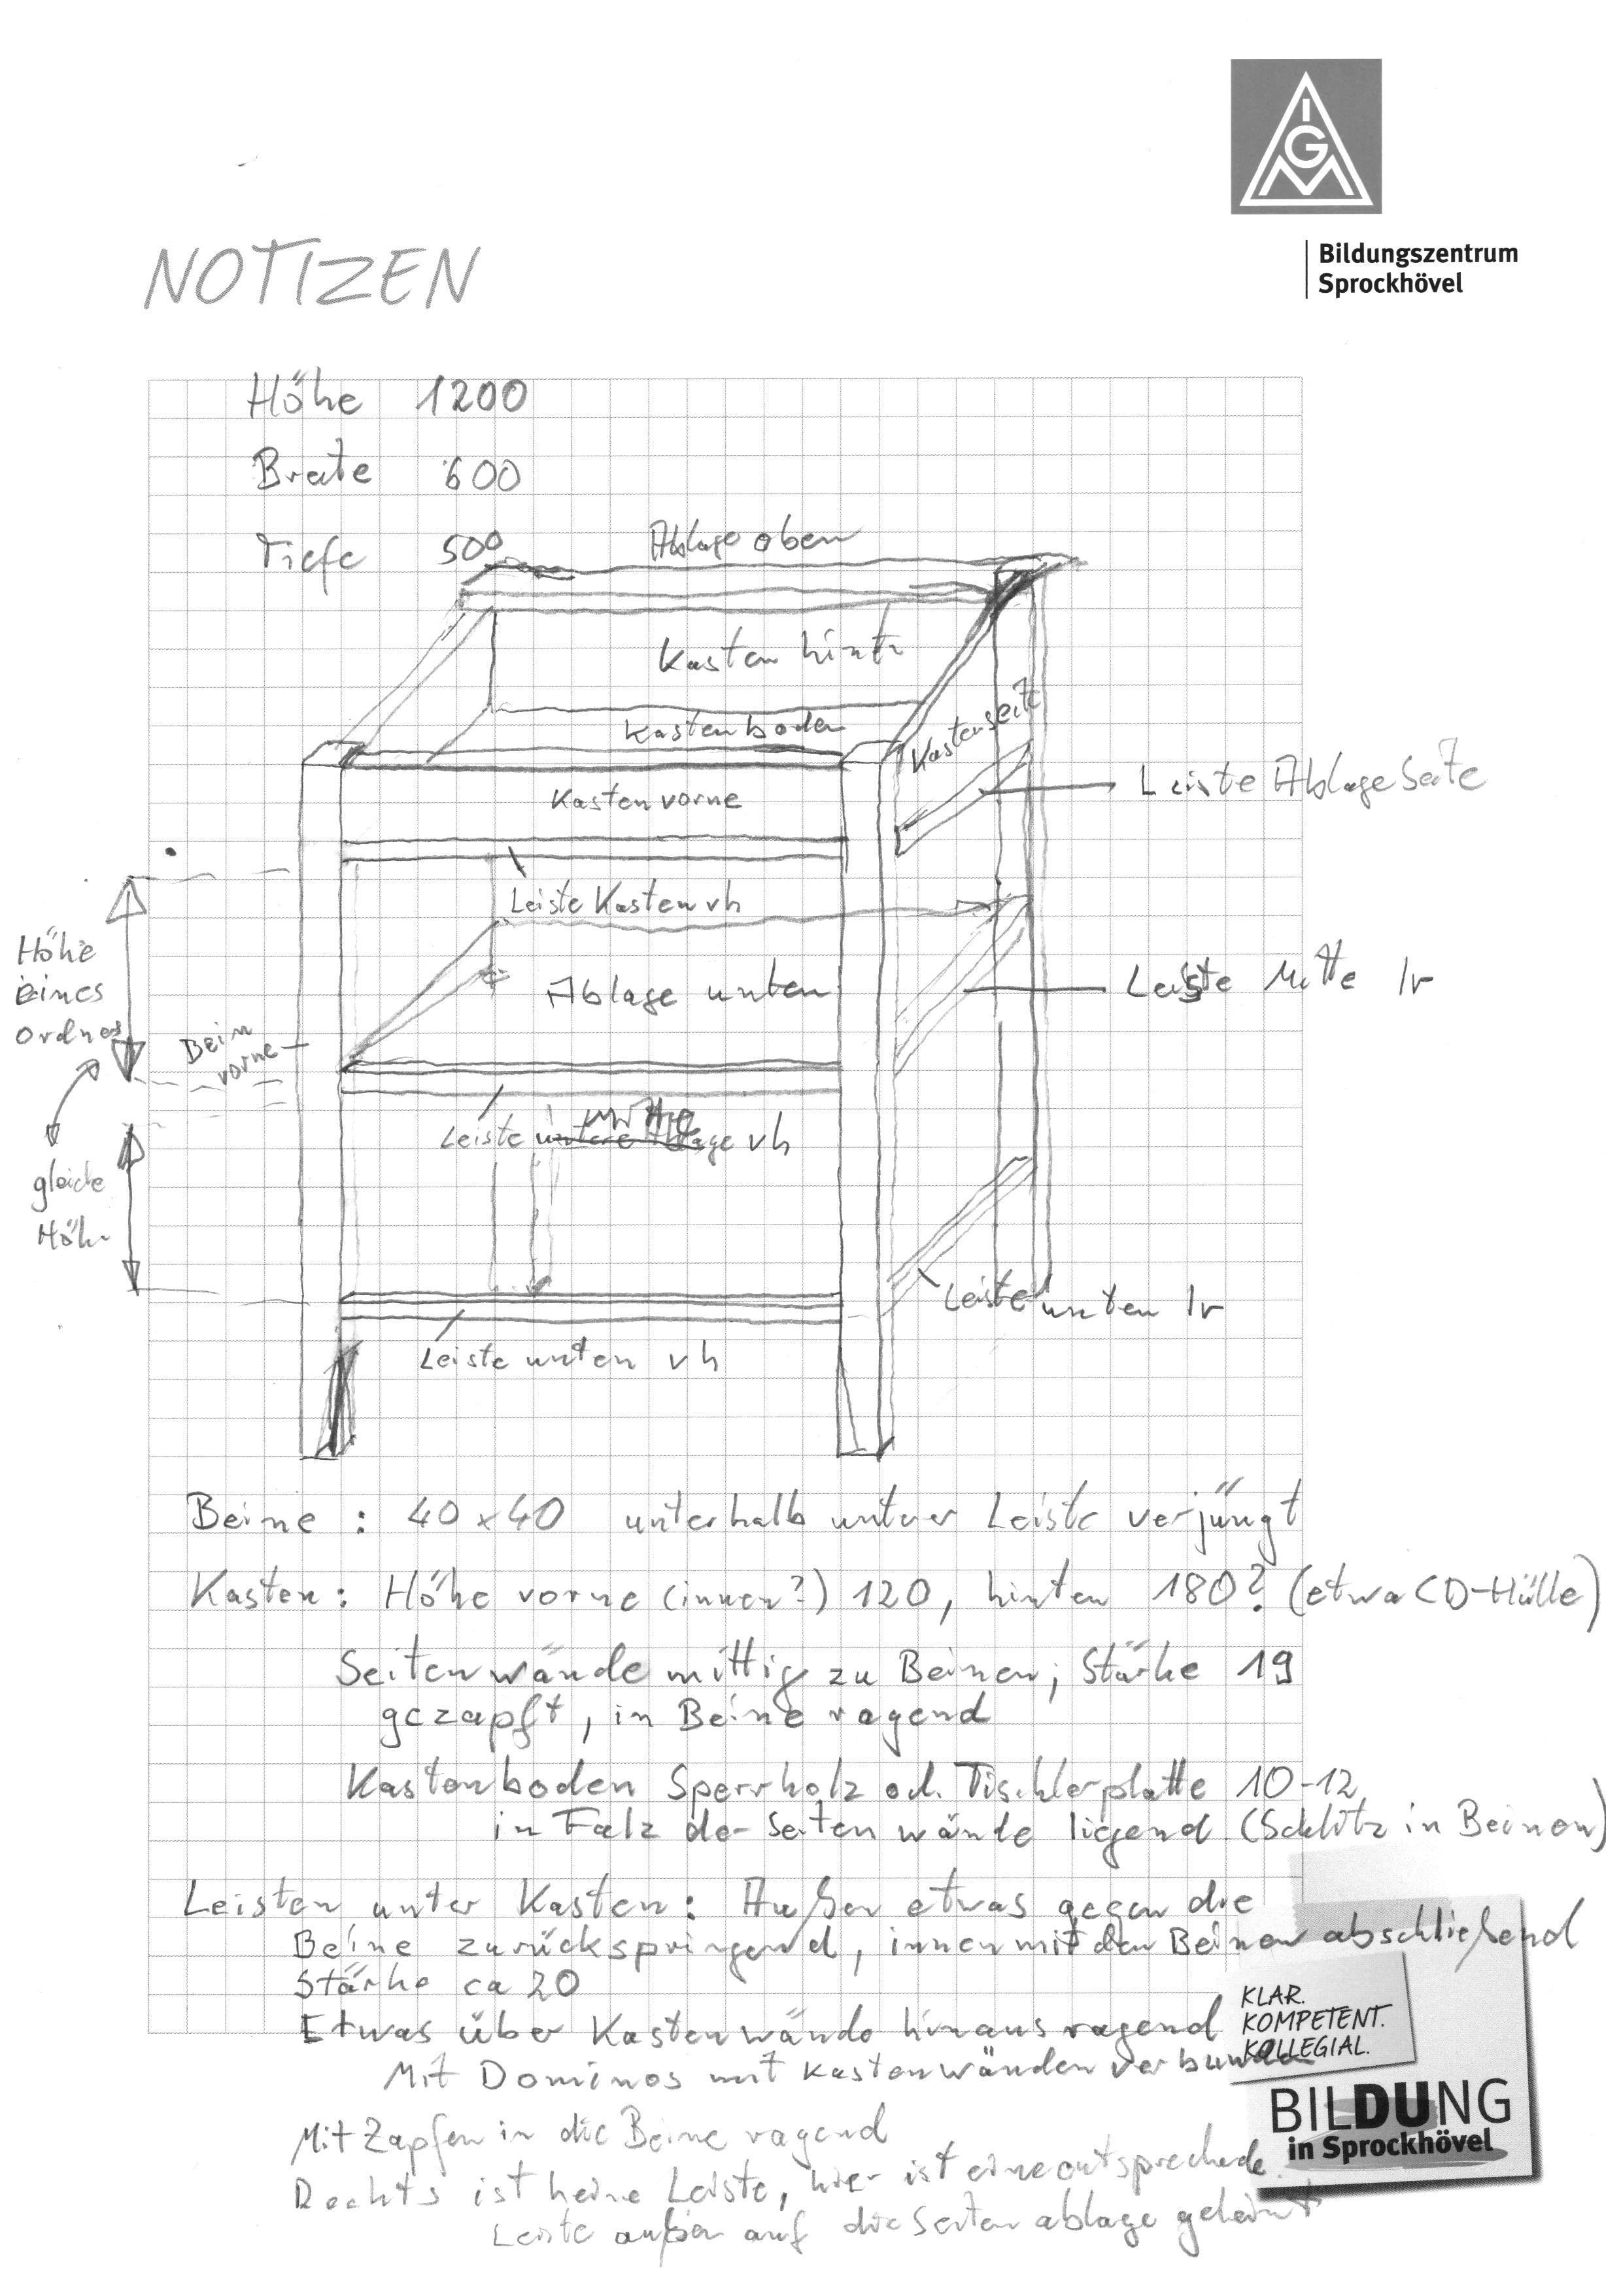 IGM
Bildungszentrum
Sprockhövel
NOTIZEN
Höhe 1200
Breite 600
Tiefe 500
Ablage oben
Kasten hinten
Kastenboden
Kastenseite
Kasten vorne
Leiste Ablage Seite
Leiste Kasten vh
Höhe
eines
Ordners
Bein
vorne
Ablage unten
Leiste Mitte lr
Leiste mittig vh
gleiche
Höhe
Leiste unten lr
Leiste unten vh
Beine : 40 x 40 unterhalb unterer Leiste verjüngt
Kasten : Höhe vorne (innen?) 120, hinten 180? (etwa CD-Hülle)
Seitenwände mittig zu Beinen, Stärke 19
gezapft, in Beine ragend
Kastenboden Sperrholz od. Tischlerplatte 10-12
in Falz der Seitenwände liegend. (Schlitz in Beinen)
Leisten unter Kasten: Außen etwas gegen die
Beine zurückspringend, innen mit den Beinen abschließend
Stärke ca 20
Etwas über Kastenwände hinausragend
Mit Dominos mit Kastenwänden verbunden
Mit Zapfen in die Beine ragend
Rechts ist keine Leiste, hier ist eine entsprechende
Leiste außen auf die Seitenablage geleimt
KLAR.
KOMPETENT.
KOLLEGIAL.
BILDUNG
in Sprockhövel